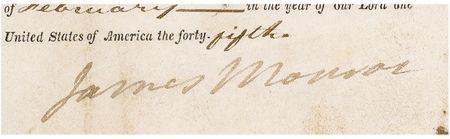 of February in the year of Our Lord one
United States of America the forty-fifth.
James Monroe